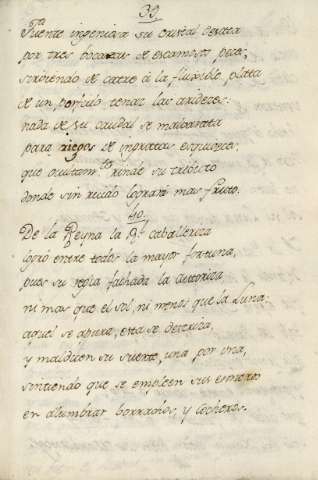 39.
Fuente ingeniosa su cristal desata
por tres bocazas de escamosos peces,
sirviendo de catre à la fluxible plata
de un porfido tenaz las arideces:
nada de su caudal se malbarata
para riegos de ingratas esquiveces:
que ocultamte rinde su tributo
donde sin ruido lograra mas fruto.
40.
De la Reyna la Rl. caballeriza
logrò entre todas la mayor fortuna,
pues su regia fachada la autoriza
ni mas que el sol, ni menos que la Luna:
aquel se apura, esta se descriza,
y maldicen su suerte, una por una,
sintiendo que se empleen sus esmeros
en alumbrar borrachos, y cocheros.